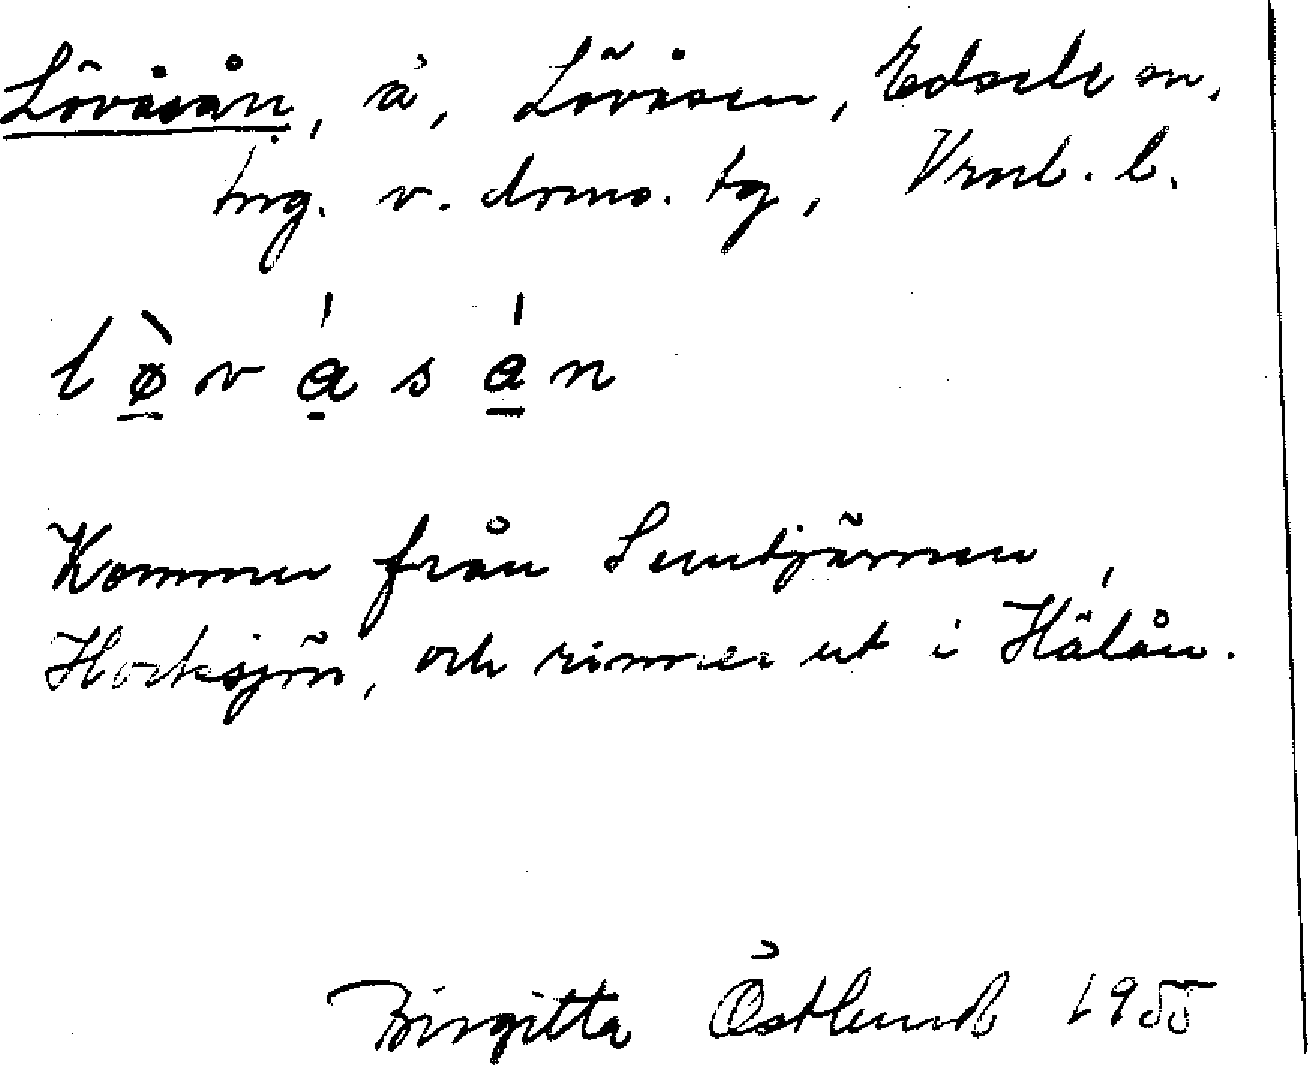 Lövåsån, å, Lövåsen, Edsele sn,
tng. v. dms. tg, Vrnl. l.
l ø̀ v á s á n
Kommer från Suntjärnen,
Hocksjön, och rinner ut i Hälån.
Birgitta Östlund 1955